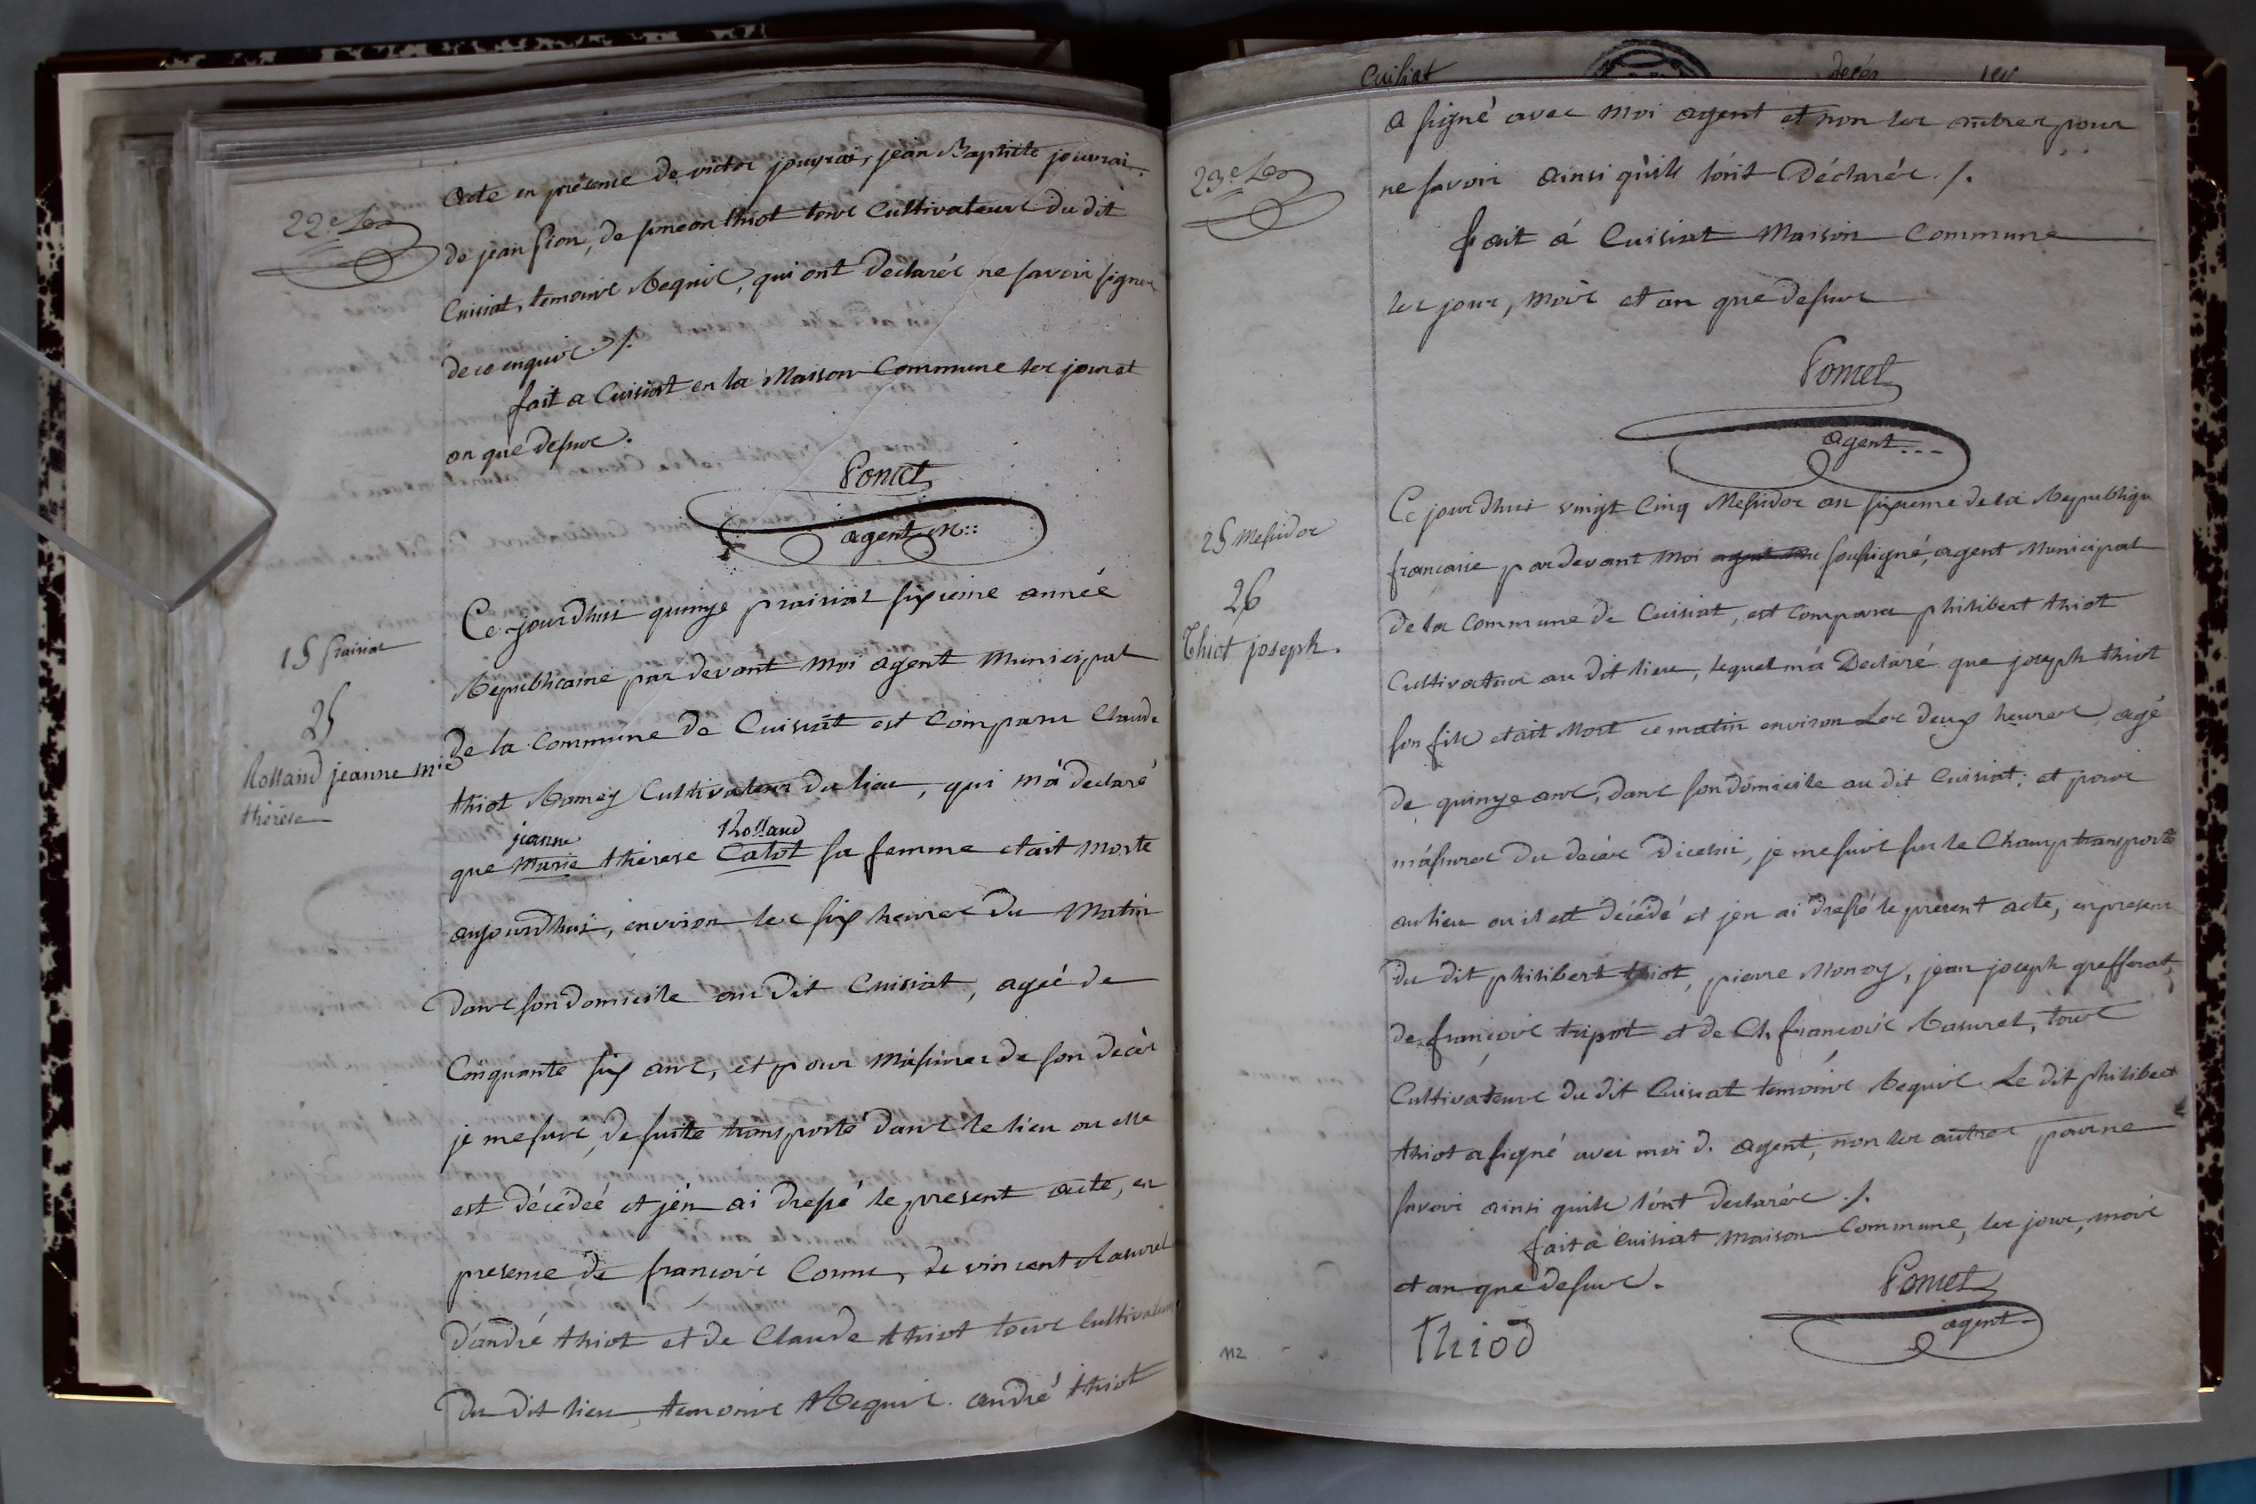 22e
acte en présence de victor jouvrai, jean Baptiste jouvrai
de jean Pion, de simeon thiot tous Cultivateurs du dit
Cuisiat, temoins Requis, qui ont declarés ne savoir signer
de ce enquis ./.
fait a Cuisiat en la Maison Commune les jour et
an que desus.
Poncet
agent M::
15 Prairial
25
Rolland jeanne Mie
thérèse
Ce jourdhui quinze prairial sixieme année
Republicaine par devant Moi agent Municipal
de la Commune de Cuisiat est Comparu Claude
thiot Romey Cultivateur du lieu, qui m'a declaré
jeanne Rolland
que Marie thérese Calot sa femme etait morte
aujourdhui, environ les six heures du Matin
dans son domicile au dit Cuisiat, ageé de
Cinquante six ans, et pour M'assurer de son decès
je me suis, de suite transporté dans le lieu ou elle
est décédeé et j'en ai dressé le present acte, en
presence de francois Connu, de vincent Rasurel
d'andré thiot et de Claude thiot tous Cultivateurs
du dit lieu, temoins Requis. andré thiot
Cuisiat decès
23e
a signé avec Moi agent et non les autres pour
ne savoir ainsi qu'ils l'ont Déclarés ./.
fait á Cuisiat Maison Commune
les jour, Mois et an que desus
Poncet
agent...
25 Messidor
26
Thiot joseph.
Ce jourdhui vingt Cinq Messidor an sixieme de la Republique
francaise par devant Moi agent soussigné, agent Municipal
de la Commune de Cuisiat, est Comparu philibert thiot
Cultivateur au dit lieu, lequel m'a Declaré que joseph thiot
son fils etait Mort ce matin environ Les deux heures, agé
de quinze ans, dans son domicile au dit Cuisiat; et pour
m'assurer du decès dicelui, je me suis sur le Champ transporté
au lieu ou il est décédé et j'en ai dressé le present acte, en presence
du dit philibert thiot, pierre Monoy, jean joseph grefferat,
de francois tripot et de Ch. francois Rasurel, tous
Cultivateurs du dit Cuisiat temoins Requis. Le dit philibert
thiot a signé avec moi d. agent, non les autres pour ne
savoir ainsi quils l'ont declarés ./.
fait à Cuisiat Maison Commune, les jour, mois
et an que desus.
Poncet
agent
Thiod
112